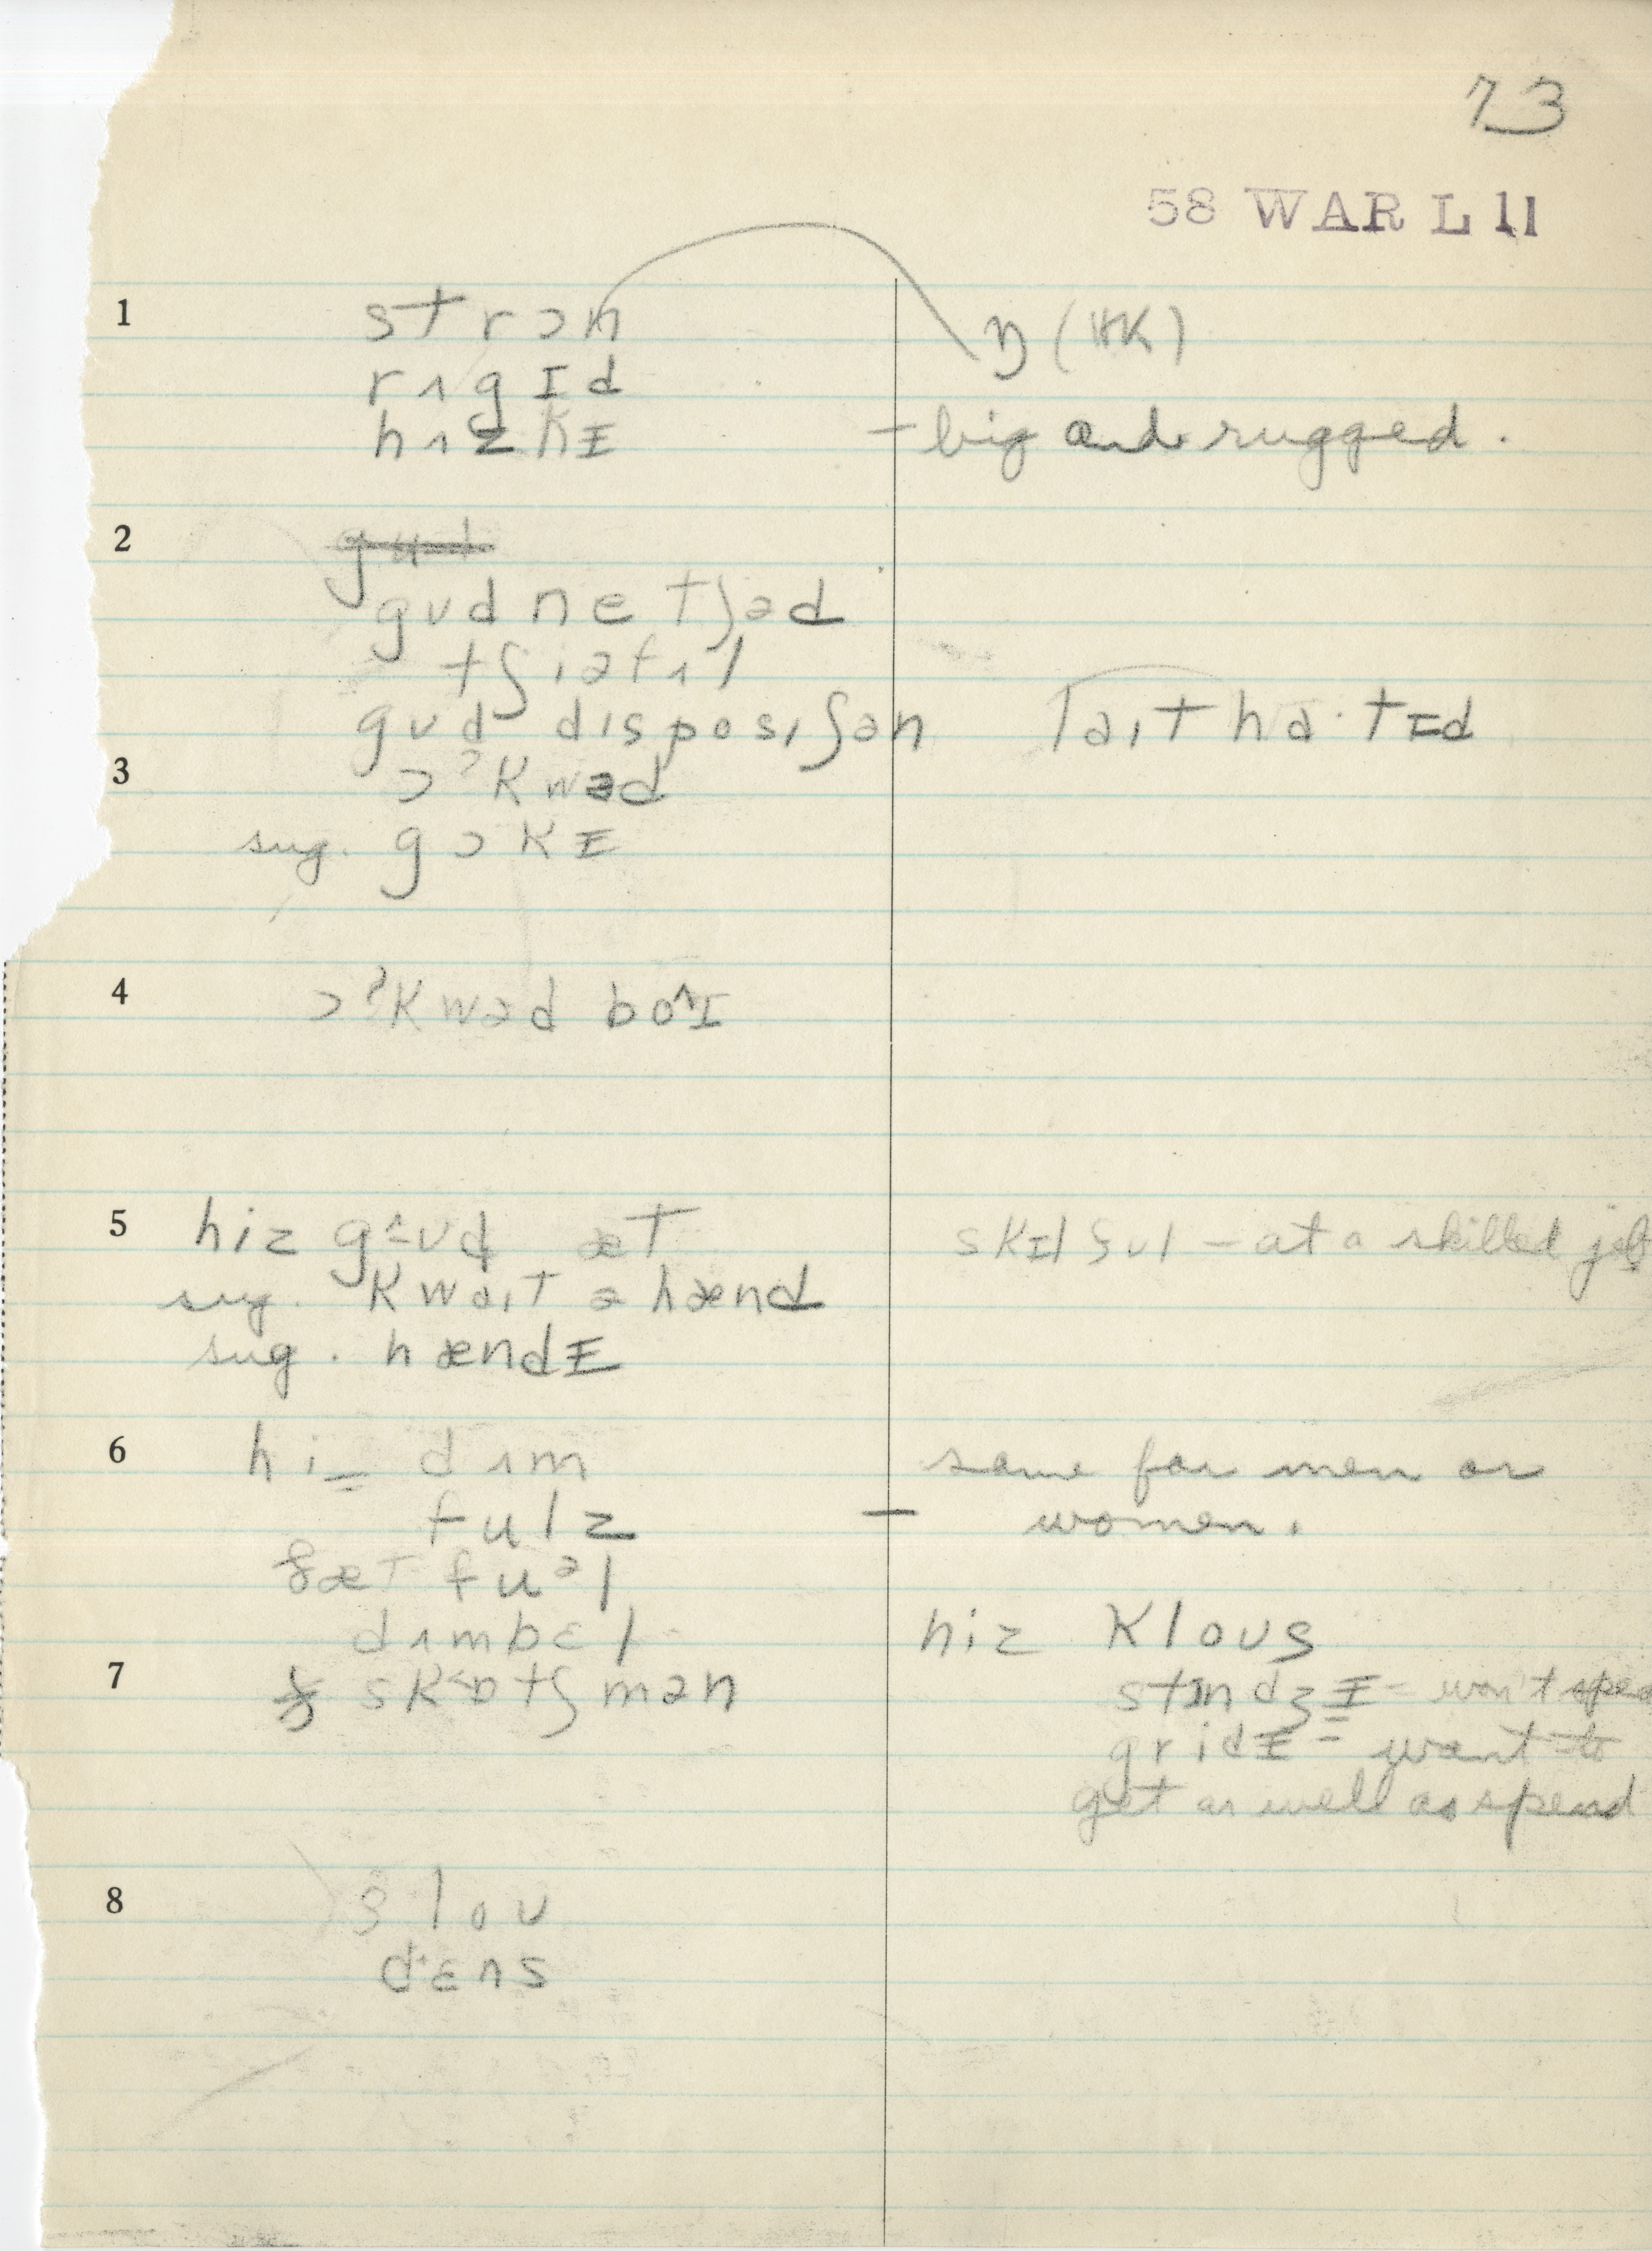 73
58 WAR L 11
1 strɔn ŋ (HK)
rʌgɪd
hʌzkɪ – big and rugged.
2 gud
gʊdnetʃəd
tʃiəfʌl
gʊd disposiʃən laithatɪd
3 ɔˀkwəd
sug. gɔkɪ
4 ɔˀkwəd boˆɪ
5 hiz gʊd æt skɪlful – at a skilled job
sug. kwait ə hænd
sug. hændɪ
6 hiz dʌm same for men or
fulz – women.
fæt fuəl
dʌmbɛl hiz klous
7 skɒtʃmən stɪndʒɪ = won't
gridɪ = want to
get as well as spend
8 slou
dɛns